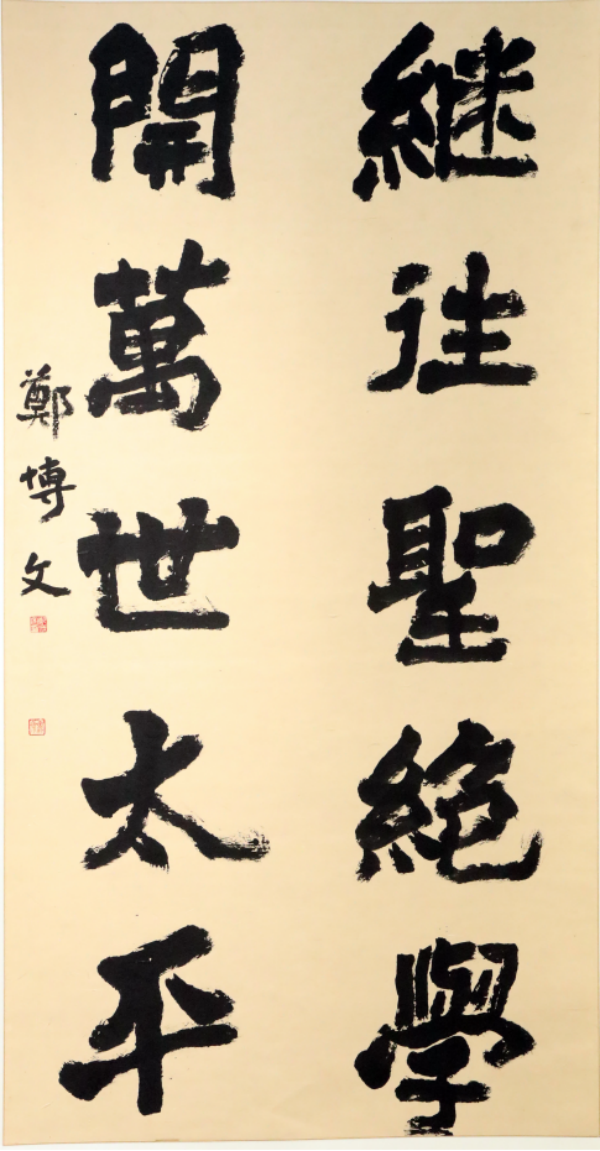 継往聖絶學
開萬世太平
鄭博文